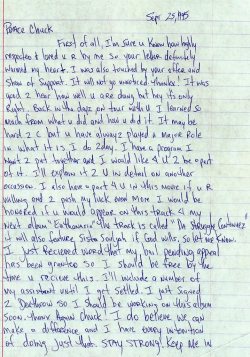 Sept 25, 1995
Peace Chuck
First of all, I'm sure u know how highly
respected & loved u R by me so your letter definitely
warmed my heart. I was also touched by your offer and
show of support. It will not go unnoticed thanks. It was
good 2 hear how well u are doing but hey its only
Right. Back in the days on tour with U I learned so
much from what u did and how u did it. It may be
hard 2 c but u have always played a Major Role
in what it is I do 2day. I have a program I
Want 2 put together and I would like 4 U 2 be a part
of it. I'll explain it 2 U in detail on another
occassion. I also have a part 4 U in this movie if u R
willing and 2 push my luck even More I would be
honored if u would appear on this track 4 my
next album "Euthanasia" The track is called "Da Struggle Continuez"
it will also feature Sista Souljah if God wills. So let me know.
I just Recieved word that my bail pending appeal
has been granted so I should be free by the
time u recieve this. I'll include a number of
my assistant until I get settled. I just signed
2 Deathrow so I should be working on this album
soon. thanx Again Chuck! I do believe we can
make a difference and I have every intention
of doing Just that. STAY STRONG! Keep me in